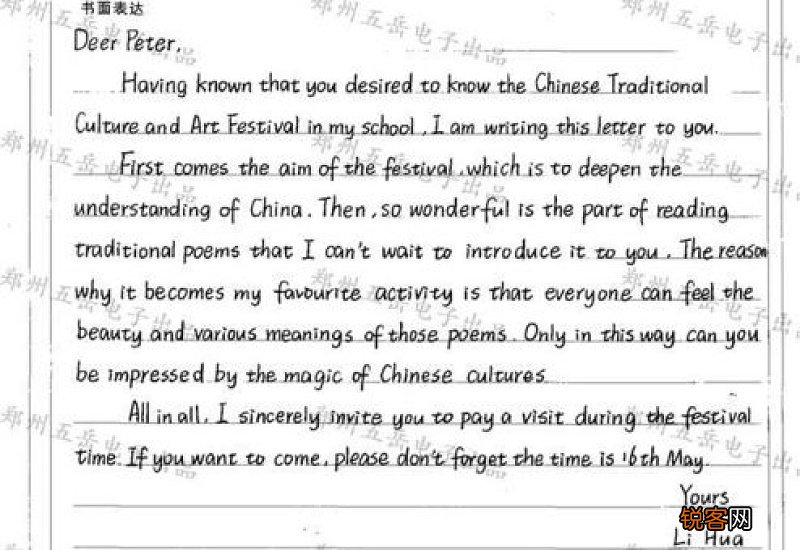 书面表达
Deer Peter,
Having known that you desired to know the Chinese Traditional
Culture and Art Festival in my school, I am writing this letter to you.
First comes the aim of the festival, which is to deepen the
understanding of China. Then, so wonderful is the part of reading
traditional poems that I can't wait to introduce it to you. The reason
why it becomes my favourite activity is that everyone can feel the
beauty and various meanings of those poems. Only in this way can you
be impressed by the magic of Chinese cultures.
All in all, I sincerely invite you to pay a visit during the festival
time. If you want to come, please don't forget the time is 16th May.
Yours
Li Hua
郑州五岳电子出品
郑州五岳电子出品
郑州五岳电子出品
郑州五岳电子出品
郑州五岳电子出品
郑州五岳电子出品
郑州五岳电子出品
郑州五岳电子出品
郑州五岳电子出品
锐客网